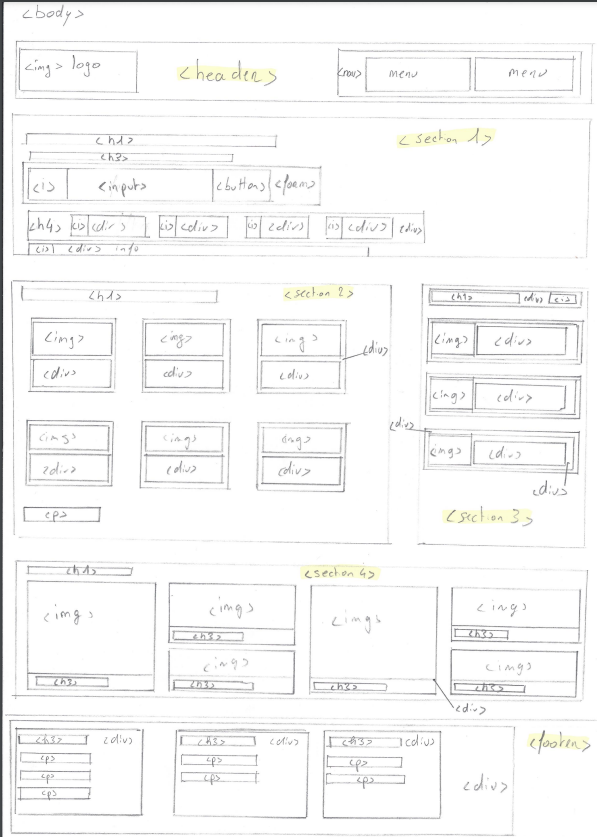 <body>
<img> logo <header> <nav> menu menu
<h1> <section 1>
<h3>
<i> <input> <button> <form>
<h4> <i> <div> <i> <div> <i> <div> <i> <div> <div>
<i> <div> info
<h1> <section 2>
<img> <img> <img>
<div>
<div> <div> <div>
<img> <img> <img>
<div> <div> <div>
<p>
<h1> <div> <i>
<img> <div>
<img> <div>
<div>
<img> <div>
<div>
<section 3>
<h1> <section 4>
<img> <img> <img> <img>
<h3> <h3>
<img> <img>
<h3> <h3> <h3> <h3>
<div>
<h3> <div> <h3> <div> <h3> <div> <footer>
<p> <p> <p>
<p> <p> <p> <div>
<p>